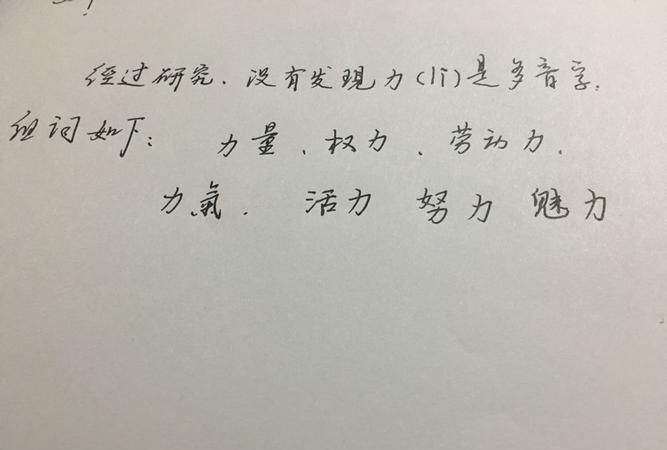 经过研究.没有发現力(lì)是多音字.
组词如下: 力量、权力、劳动力.
力氣. 活力 努力 魅力